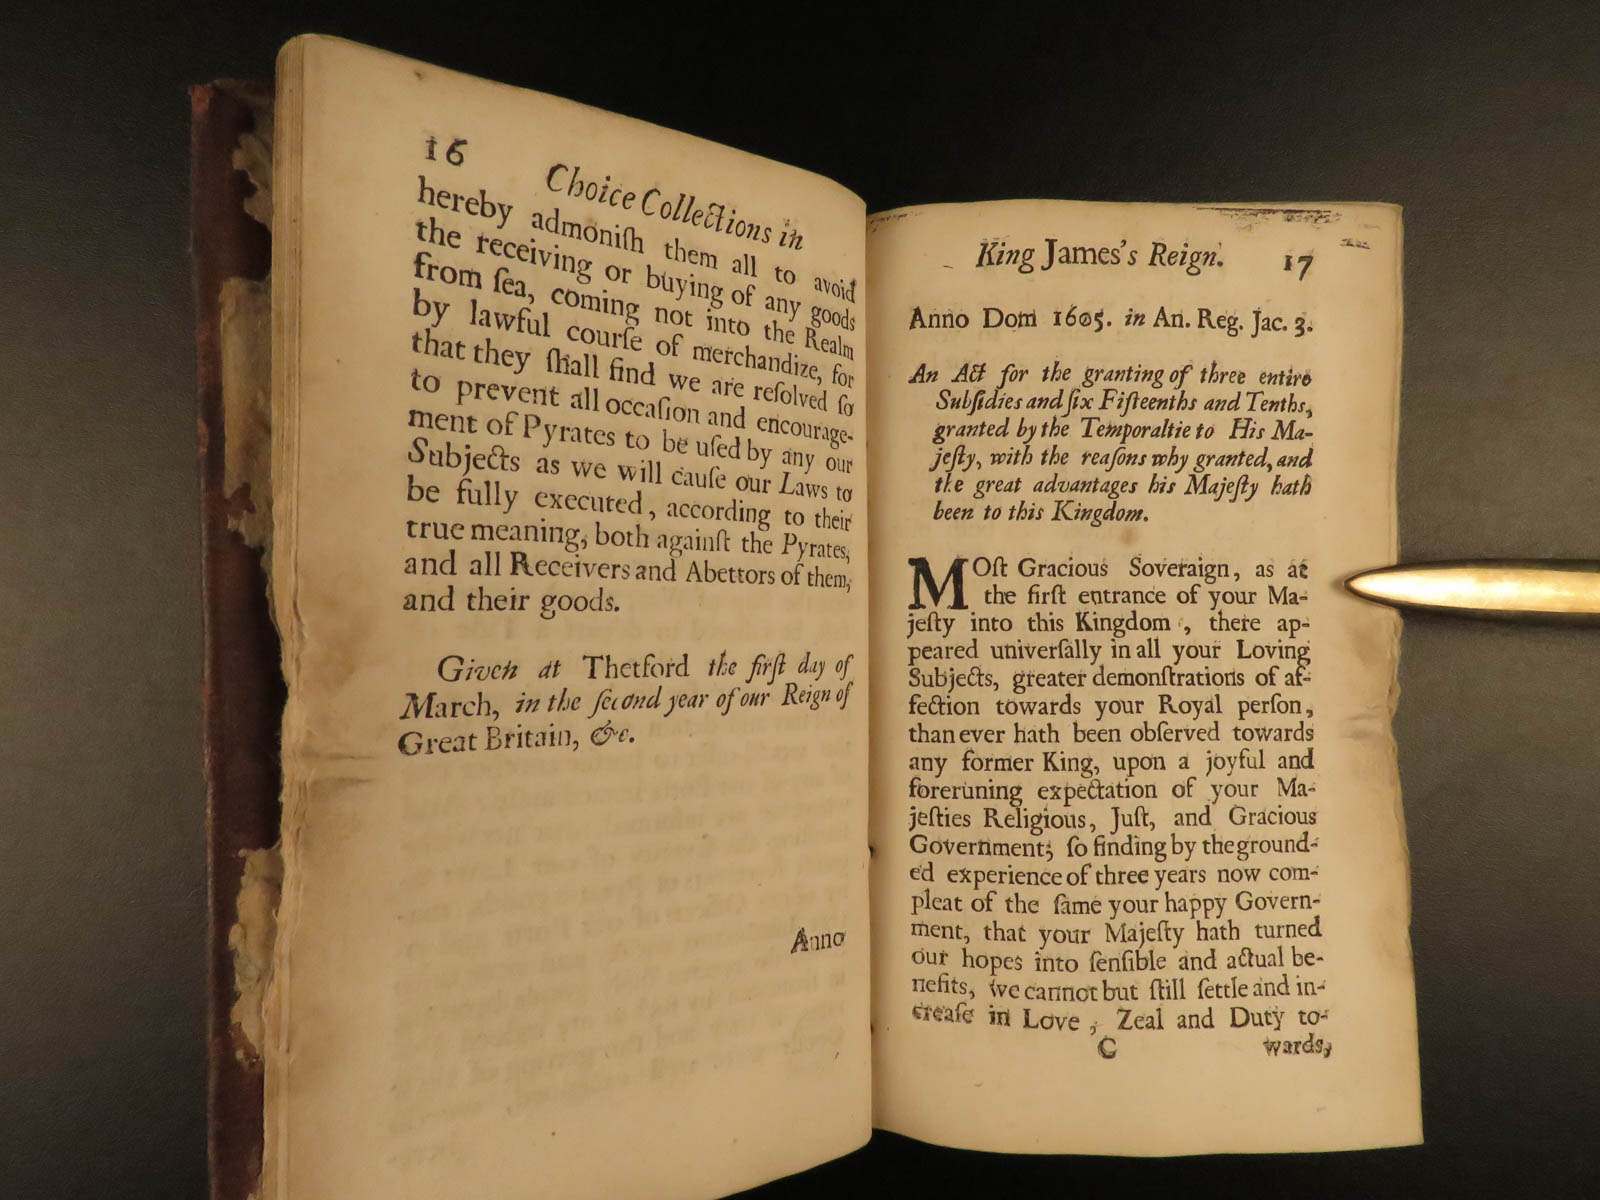 16
Choice Collections in
hereby admoniſh them all to avoid
the receiving or buying of any goods
from ſea, coming not into the Realm
by lawful courſe of merchandize, for
that they ſhall find we are reſolved ſo
to prevent all occaſion and encourage-
ment of Pyrates to be uſed by any our
Subjects as we will cauſe our Laws to
be fully executed, according to their
true meaning, both againſt the Pyrates,
and all Receivers and Abettors of them,
and their goods.
Given at Thetford the firſt day of
March, in the ſecond year of our Reign of
Great Britain, &c.
Anno
King James's Reign. 17
Anno Dom 1605. in An. Reg. Jac. 3.
An Act for the granting of three entire
Subſidies and ſix Fifteenths and Tenths,
granted by the Temporaltie to His Ma-
jeſty, with the reaſons why granted, and
the great advantages his Majeſty hath
been to this Kingdom.
MOſt Gracious Soveraign, as at
the firſt entrance of your Ma-
jeſty into this Kingdom, there ap-
peared univerſally in all your Loving
Subjects, greater demonſtrations of af-
fection towards your Royal perſon,
than ever hath been obſerved towards
any former King, upon a joyful and
foreruning expectation of your Ma-
jeſties Religious, Juſt, and Gracious
Government; ſo finding by the ground-
ed experience of three years now com-
pleat of the ſame your happy Govern-
ment, that your Majeſty hath turned
our hopes into ſenſible and actual be-
nefits, we cannot but ſtill ſettle and in-
creaſe in Love, Zeal and Duty to-
C wards,